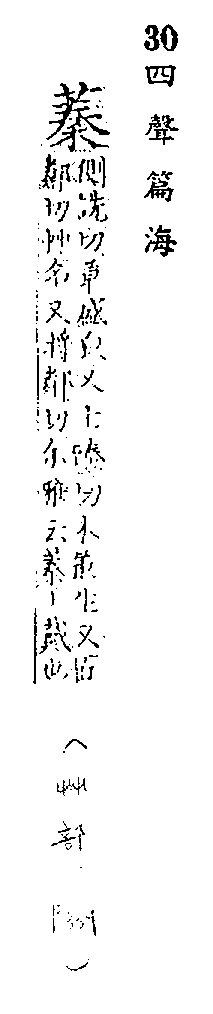 30四聲篇海
蓁
側詵切草盛皃又士臻切木叢生又匠
鄰切艸名又將鄰切尔雅云蓁丨戴也
（艸部．）